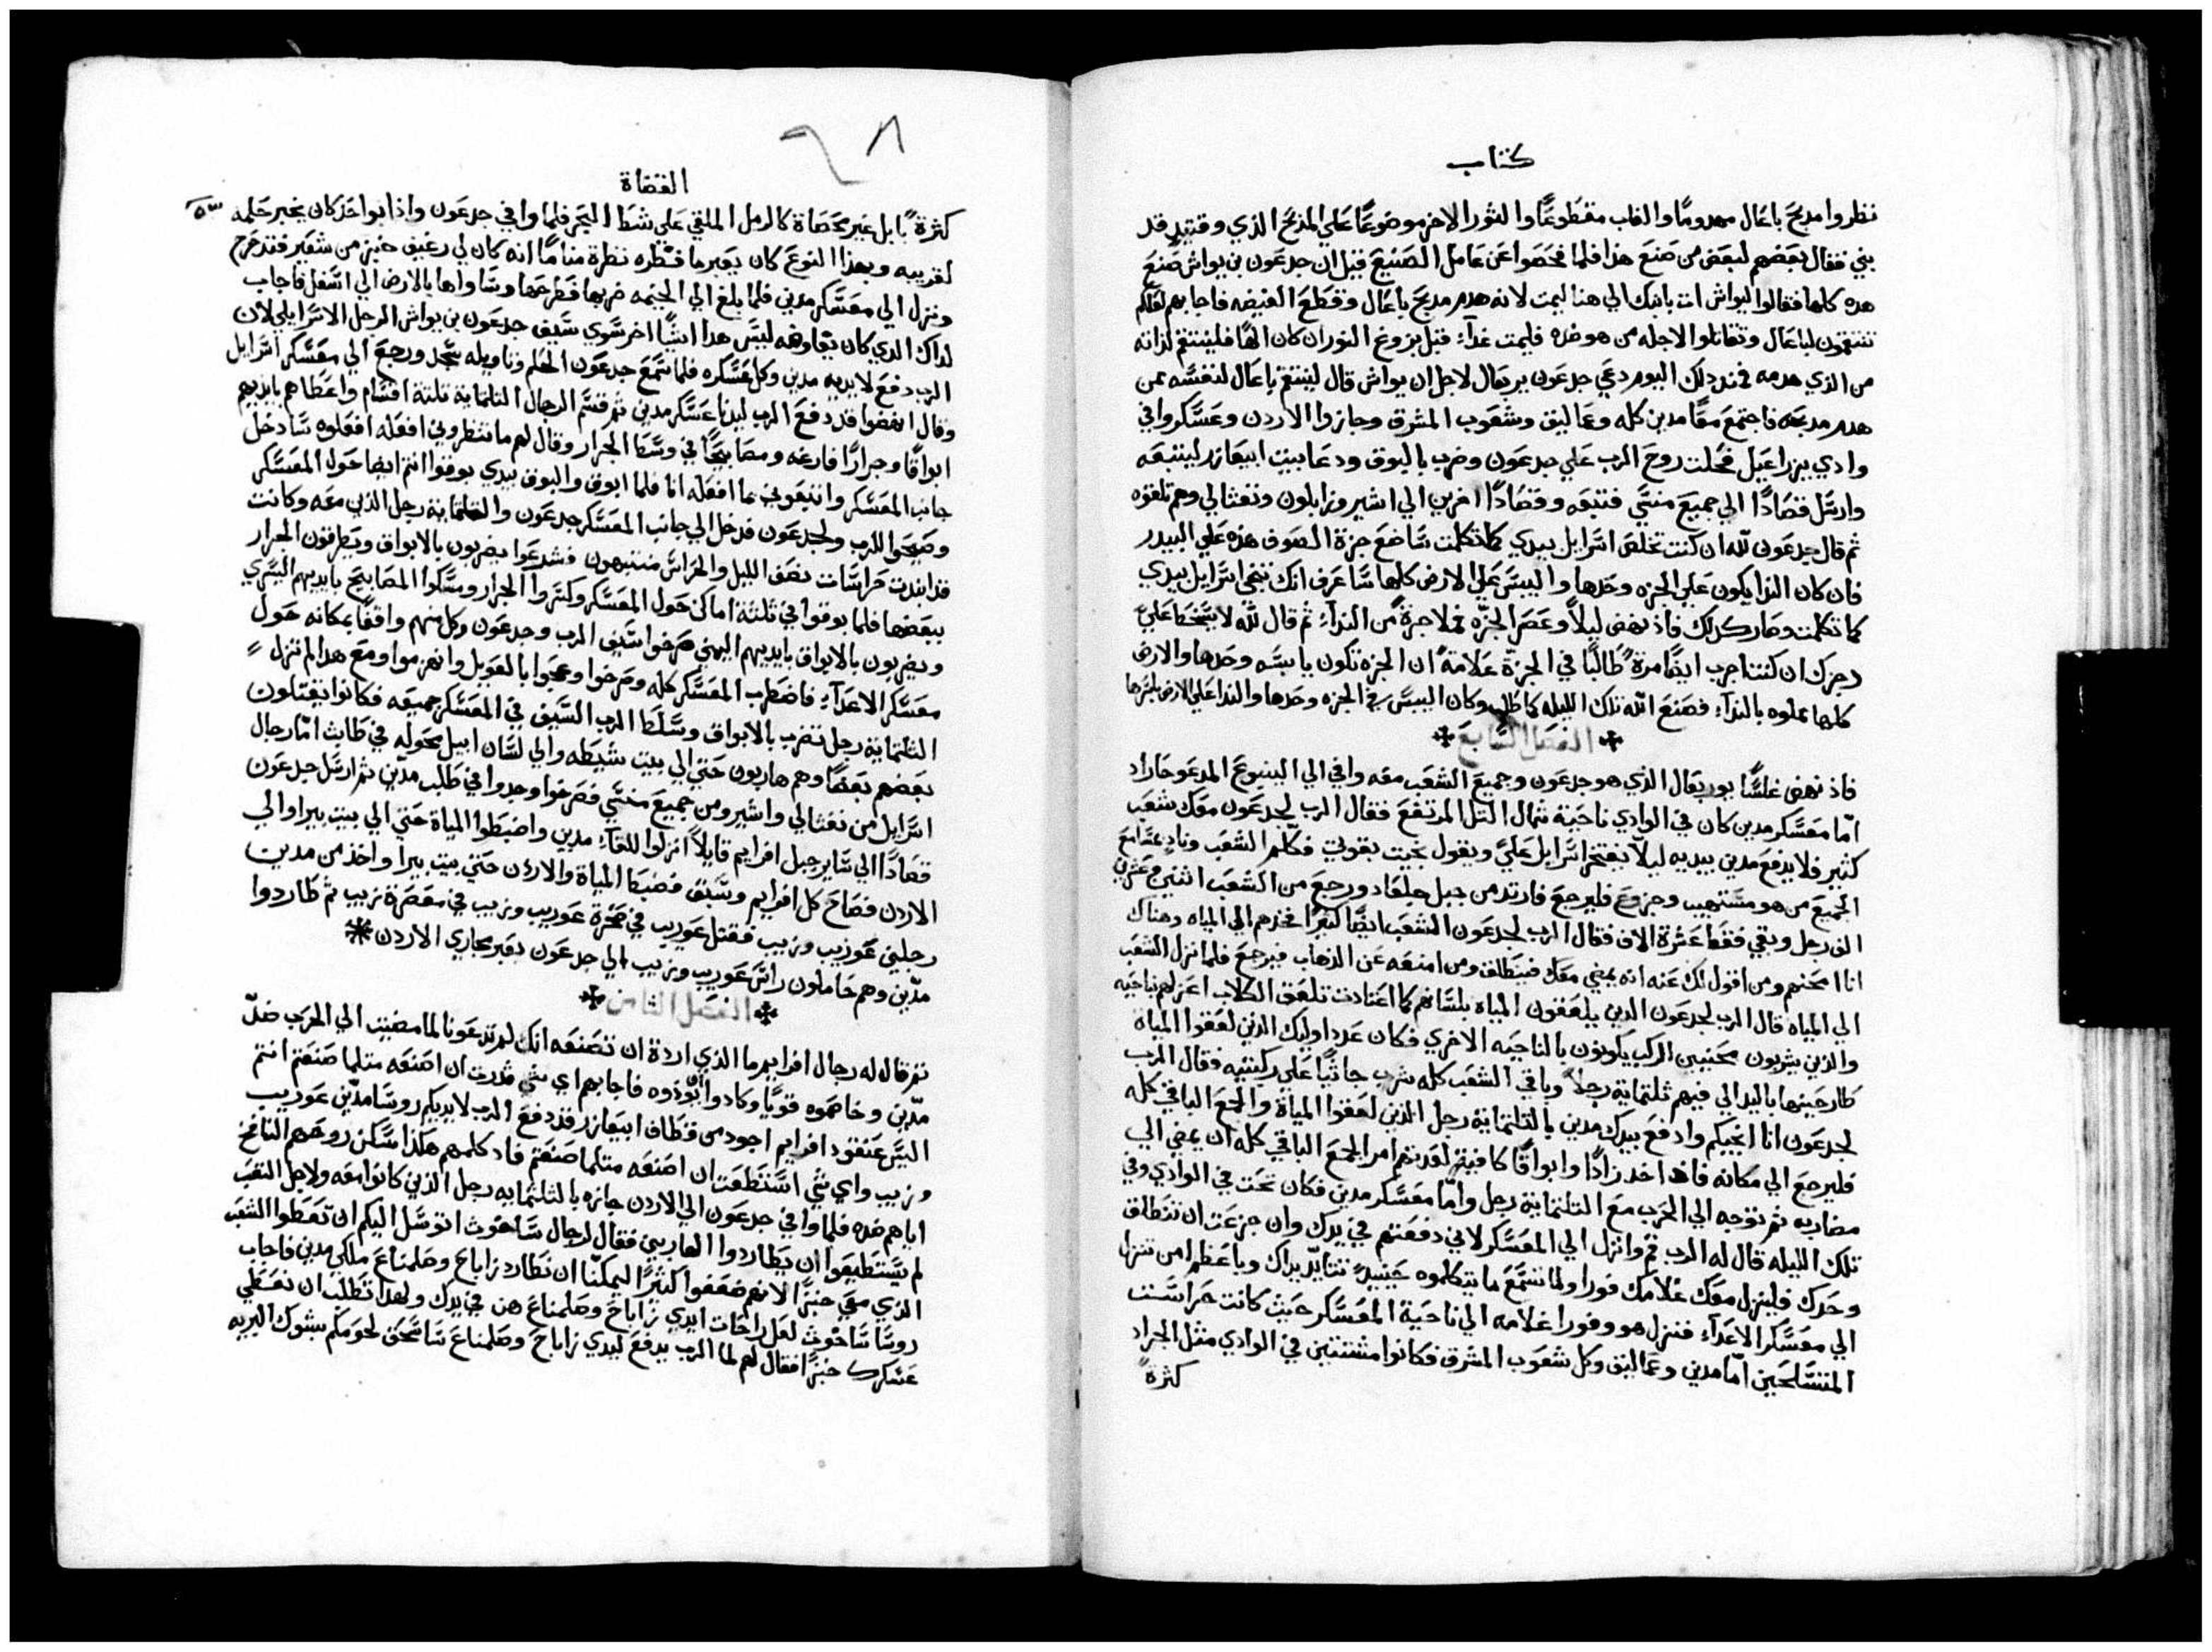 كتاب
نظروا مدبح باعال مهدومًا والغاب مقطوعًا والثور الاخر موضوعًا علي المذبح الذي وقتيدٍ قد
بني فقال بعضهم لبعض من صنع هذا فلما فحصوا عن عامل الصنيع قيل ان جدعون بن يواش صنع
هده كلها فقالوا ليواش ات بابنك الي هنا ليمت لانه هدم مدبح باعال وقطع الغيضه فاجابهم لعلكم
تنتقمون لباعال وتقاتلوا لاجله من هو ضده فليمت غداءً قبل بزوغ النور ان كان الهًا فلينتقم لذاته
من الذي هدمه فمند دلك اليوم دعي جدعون يربعال لاجل ان يواش قال لينتقم باعال لنفسه ممن
هدم مدبحه فاجتمع معًا مدين كله وعماليق وشعوب المشرق وجازوا الاردن وعسكروا في
وادي يزراعيل فحُلت روح الرب علي جدعون وضرب بالبوق ودعا بيت ابيعازر ليتبعه
وارسل قصادًا الي جميع منسي فتبعه وقصادًا اخرين الي اشير وزابلون ونفثالي وهم تلقوه
ثم قال جدعون للّه ان كنت تخلص اسرايل بيدي كما تكلمت ساضع جزة الصوف هذه علي البيدر
فان كان الندا يكون علي الجزه وحدها واليبس علي الارض كلها ساعرف انك تنجي اسرايل بيدي
كما تكلمت وصار كدلك فاذ نهض ليلاً وعصر الجزّه فملا جرةً من النداءِ ثم قال للّه لا يسخط عليّ
رجزك ان كنت اجرب ايضًا مرةً طالبًا في الجزّة علامةً ان الجزه تكون يابسه وحدها والارض
كلها مملوه بالنداءِ فصنع اللّه تلك الليله كما طلب وكان اليبس في الجزه وحدها والندا علي الارض باسرها
الفصل السابع
فاذ نهض غلسًا يوربعال الذي هو جدعون وجميع الشعب معه وافي الي الينبوع المدعو حاراد
امّا معسكر مدين كان في الوادي ناحية شمال التل المرتفع فقال الرب لجدعون معك شعب
كثير فلا يدفع مدين بيديه ليلاّ يفتخر اسرايل عليّ ويقول نجيت بقوتي فكلّم الشعب ونادِ عند مسامع
الجميع من هو مستهيب وجزوع فليرجع فارتد من جبل جلعاد ورجع من الشعب اثنين وعشرين
الف رجل وبقي فقط عشرة الاف فقال الرب لجدعون الشعب ايضًا كثيرًا فخذهم الي المياه وهناك
انا امتحنهم ومن اقول لك عنه انه يمضي معك فينطلق ومن امنعه عن الذهاب فيرجع فلما نزل الشعب
الي المياه قال الرب لجدعون الدين يلعقون المياه بلسانهم كما اعتادت تلعق الكلاب اعزلهم ناحيه
والذين يشربون محنيين الركب يكونون بالناحيه الاخري فكان عدد اوليك الذين لعقوا المياه
طارحينها باليد الي فيهم ثلتماية رجلاً وباقي الشعب كله شرب جاثيًا علي ركبتيه فقال الرب
لجدعون انا انجيكم وادفع بيدك مدين بالتلتماية رجل الذين لعقوا المياه والجمع الباقي كله
فليرجع الي مكانه فاذا اخد زادًا وابواقًا كافية لعدتهم امر الجمع الباقي كله ان يمضي الي
مضاربه ثم توجه الي الحرب مع التلتماية رجل وامّا معسكر مدين فكان تحت في الوادي وفي
تلك الليله قال له الرب قم وانزل الي المعسكر لاني دفعتهم في يدك وان جزعت ان تنطلق
وحدك فلينزل معك غلامك فورا ولما تسمع ما يتكلموه حينيدٍ تتايّد يداك وباعظم امن تنزل
الي معسكر الاعداءِ فنزل هو وفورا غلامه الي ناحية المعسكر حيث كانت حراسات
المتسلحين امّا مدين وعماليق وكل شعوب المشرق فكانوا مشتتين في الوادي مثل الجراد
كثرةً
٦٨
القضاة
كثرةً ابل غير محصاة كالرمل الملقي علي شط البحر فلما وافي جدعون واذا بواحد كان يخبر حلمه
لقريبه وبهذا النوع كان يعبر ما نظره نظرة منامًا انه كان لي رغيف خبز من شعير فتدحرج
ونزل الي معسكر مدين فلما بلغ الي الخيمه ضربها فطرحها وساواها بالارض الي اسفل فاجاب
لذاك الدي كان يفاوضه ليس هدا ايشًا اخر سوي سيف جدعون بن يواش الرجل الاسرايلي لان
الرب دفع لايديه مدين وكل عسكره فلما سمع جدعون الحُلم وتاويله سجد ورجع الي معسكر اسرايل
وقال انهضوا قد دفع الرب ليدنا عسكر مدين ثم قسم الرجال التلتماية ثلتة اقسام واعطاهم بايديهم
ابواقًا وجرارًا فارغه ومصابيحًا في وسط الجرار وقال لهم ما تنظروني افعله افعلوه سادخل
جانب المعسكر واتبعوني بما افعله انا فلما ابوق والبوق بيدي بوقوا انتم ايضا حول المعسكر
وصيحوا للرب ولجدعون فدخل الي جانب المعسكر جدعون والتلتماية رجل الذين معه وكانت
قد ابتدت حراسات نصف الليل والحراس منتبهون فشرعوا يضربون بالابواق ويطرقون الجرار
ببعضها فلما بوقوا في ثلثة اماكن حول المعسكر وكسروا الجرار ومسكوا المصابيح بايديهم اليسري
ويضربون بالابواق بايديهم اليمني صرخوا سيف الرب وجدعون وكل منهم واقفًا بمكانه حول
معسكر الاعداءِ فاضطرب المعسكر كله وصرخوا وعجوا بالعويل وانهزموا ومع هدا لم تزل
التلتماية رجل تضرب بالابواق وسلط الرب السيف في المعسكر جميعه فكانوا يقتتلون
بعضهم بعضًا وهم هاربون حتي الي بيت شيطه والي لسان ابيل محوله في طاباث امّا رجال
اسرايل من نفثالي واشير ومن جميع منسي فصرخوا وجدوا في طلب مدين ثم ارسل جدعون
قصادًا الي ساير جبل افرايم قايلاً انزلوا للقاءِ مدين واضبطوا المياة حتي الي بيت بيرا والي
الاردن فصاح كل افرايم وسبق فضبط المياة والاردن حتي بيت بيرا واخذ من مدين
رجلين عوريب وزيب فقتل عوريب في صخرة عوريب وزيب في معصرة زيب ثم طاردوا
مدّين وهم حاملون راس عوريب وزيب الي جدعون بعبر مجاري الاردن
الفصل الثامن
ثم قال له رجال افرايم ما الذي اردة ان تصنعه انك لم تدعونا لما مضيت الي الحرب ضدّ
مدّين وخاصموه قويًا وكادوا يؤذوه فاجابهم اي شي قدرت ان اصنعه متلما صنعتم انتم
اليس عنقود افرايم اجود من قطاف ابيعازر قد دفع الرب لايديكم روسا مدّين عوريب
وزيب واي شي استطعت ان اصنعه متلما صنعتم فاد كلمهم هكذا سكن روحهم النافخ
اياهم ضده فلما وافي جدعون الي الاردن جازه بالثلثمايه رجل الذين كانوا معه ولاجل التعب
لم يستطيعوا ان يطاردوا الهاربين فقال لرجال ساخوث اتوسل اليكم ان تعطوا الشعب
الذي معي خبزًا لانهم ضعفوا كثيرًا ليمكنّا ان نطارد زاباح وصلمناع ملكي مدين فاجاب
روسا ساخوث لعل راحات ايدي زاباح وصلمناع هن في يدك ولهدا تطلب ان نعطي
عسكرك خبزًا فقال لهم لما الرب يدفع ليدي زاباح وصلمناع ساسحق لحومكم بشوك البريه